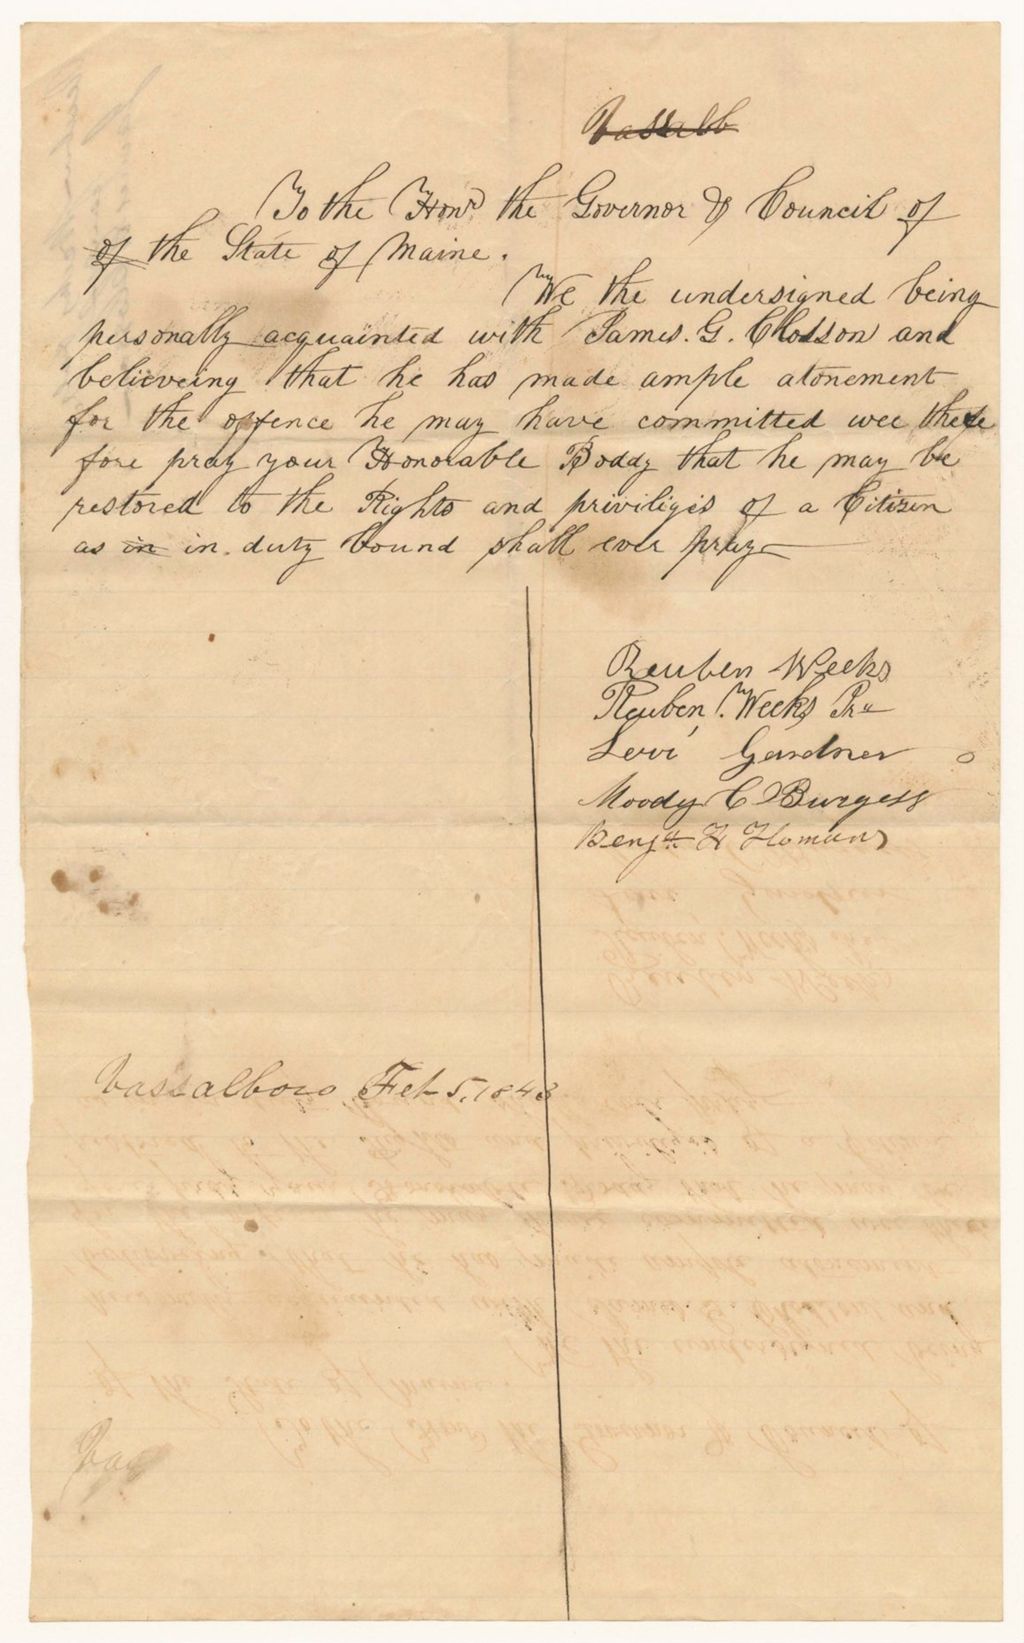 Vassalb
To the Honr the Governor & Council of
of the State of Maine.
We the undersigned being
personally acquainted with James. G. and
believeing that he has made ample atonement
for the offence he may have committed wee there
fore pray your Honorable Boddy that he may be
restored to the Rights and priviliges of a Citizen
as in in duty bound shall ever pray
Reuben Weeks
Reuben Weeks Jru
Levi Gardner
Moody C Burgess
Benjn H Homans
Vassalboro Feb 5. 1843
Vas